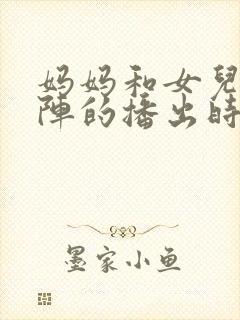 妈妈和女兒
陣的播出時
墨家小鱼